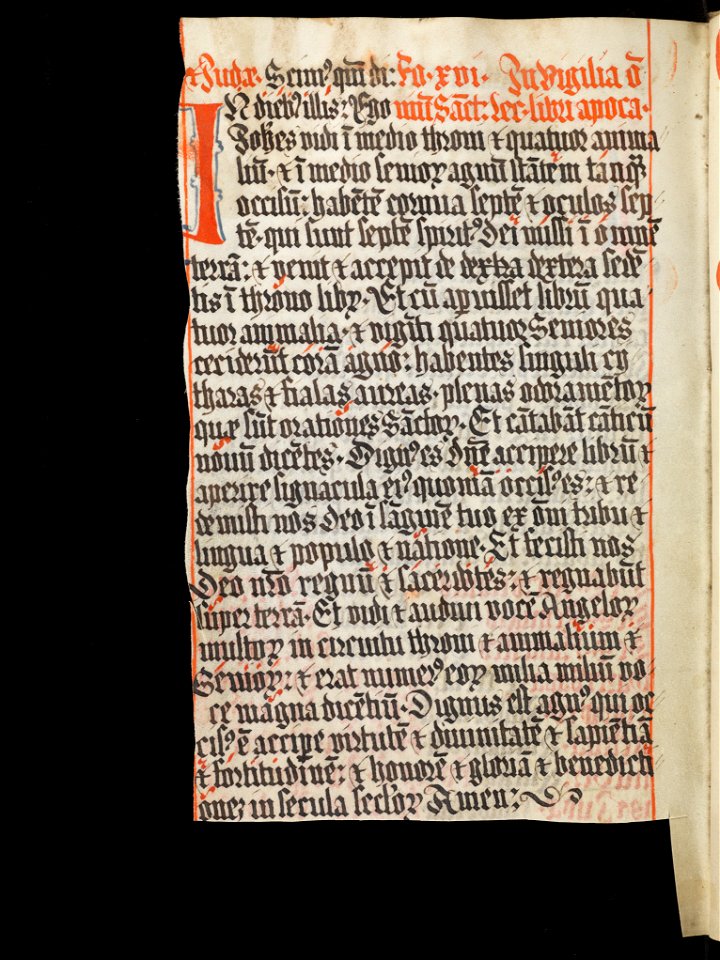 &Judæ. Scimꝰ qm̄ di: Fo. xvi. In Vigilia ō
IN diebꝰ illis: Ego niū Sāct: Lec. libri apoca.
Johēs vidi ī medio throni & quatuor anima
liū. & ī medio senioꝝ agnū stātem tanqꝫ
occisū: habētē cornua septē & oculos sep
tē. qui sunt septē spiritꝰ Dei missi ī omnē
terrā: & venit & accepit de dextra dextera sedē
tis ī throno libꝝ. Et cū apuisset librū qua
tuor animalia. & viginti quatuor Seniores
cecideru̅t corā agno: habentes singuli cy
tharas & fialas aureas. plenas odoramētoꝝ
quæ sūt orationes Sāctoꝝ. Et cātabāt cāticū
novū dicētes. Dignꝰ es Dn̄e accipere librū &
aperire signacula eiꝰ quoniā occisꝰ es: & re
demisti nos Deo ī sāginē tuo ex om̄i tribu &
lingua & populo & natione. Et fecisti nos
Deo nr̄o regnū & sacerdotes: & regnabūt
super terrā. Et vidi & audivi vocē Angeloꝝ
multoꝝ in circuitu throni & animalium &
Senioꝝ: & erat numerꝰ eoꝝ milia miliū vo
ce magna dicētiū. Dignus est agnꝰ qui oc
cisꝰ ē accipe virtutē & divinitatē & sapiētiā
& fortitudinē: & honorē & gloriā & benedicti
onez in secula secl'oꝝ Amen: